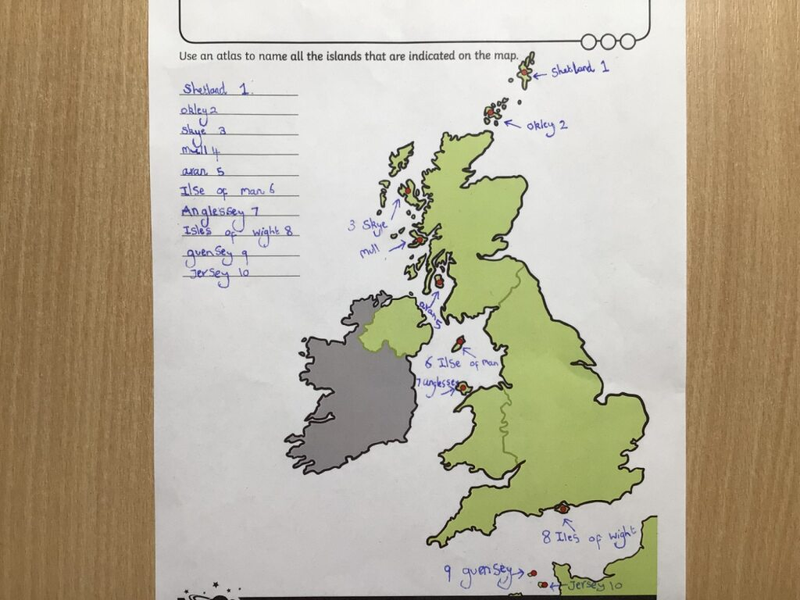 Use an atlas to name all the islands that are indicated on the map.
Shetland 1.
okley 2
Skye 3
mull 4
aran 5
Ilse of man 6
Anglessey 7
Isles of wight 8
guensey 9
Jersey 10
Shetland 1
okley 2
3 Skye
mull
aran 5
6 Ilse of man
7 anglessey
8 Iles of wight
9 guensey
Jersey 10